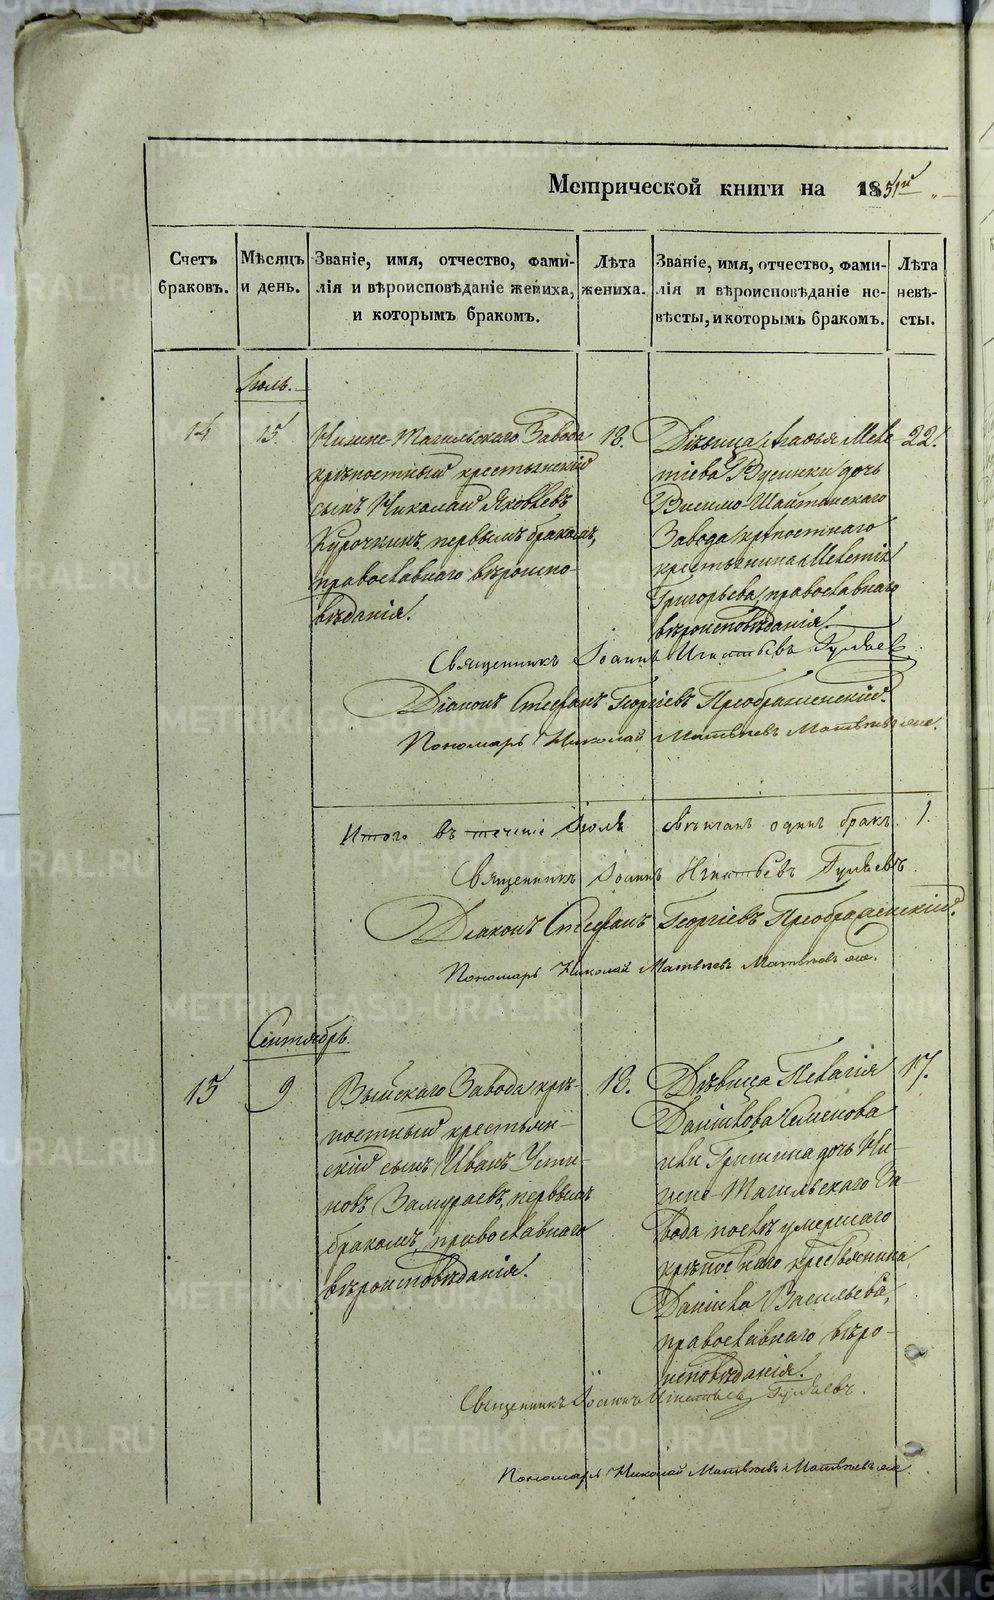 Метрической книги на 1851й
Счетъ браковъ.
Мѣсяцъ и день.
Званіе, имя, отчество, фами-
лія и вѣроисповѣданіе жениха,
и которымъ бракомъ.
Лѣта жениха.
Званіе, имя, отчество, фами-
лія и вѣроисповѣданіе не-
вѣсты, и которымъ бракомъ.
Лѣта невѣ-
сты.
Іюль.
14
15.
Нижне-Тагильскаго Завода
крѣпостный крестьянскій
сынъ Николай Яковлевъ
Курочкинъ, первымъ бракомъ,
православнаго вѣроиспо-
вѣданія.
18.
Дѣвица Агафья Меле
тіева дочь
Висимо-Шайтанскаго
Завода крѣпостнаго
крестьянина Мелетія
Григорьева, православнаго
вѣроисповѣданія.
22.
Священникъ Іоаннъ Игнатьевъ Гуляевъ.
Діаконъ Стефанъ Георгіевъ Преображенскій.
Пономарь Николай Матвѣевъ Матвѣевъ же.
Итого въ теченіе Іюля свѣнчанъ одинъ бракъ. 1.
Священникъ Іоаннъ Игнатьевъ Гуляевъ.
Діаконъ Стефанъ Георгіевъ Преображенскій.
Пономарь Николай Матвѣевъ Матвѣевъ же.
Сентябрь.
15
9
Выйскаго Завода крѣ-
постный крестьян-
скій сынъ Иванъ Усти-
новъ Замураевъ, первымъ
бракомъ, православнаго
вѣроисповѣданія.
18.
Дѣвица Пелагія
Данилова Семенова
или Гришина дочь Ни-
жне-Тагильскаго За-
вода послѣ умершаго
крѣпостнаго крестьянина
Данила Васильева,
православнаго вѣро-
исповѣданія.
17.
Священникъ Іоаннъ Игнатьевъ Гуляевъ.
Пономарь Николай Матвѣевъ Матвѣевъ же.
METRIKI.GASO-URAL.RU